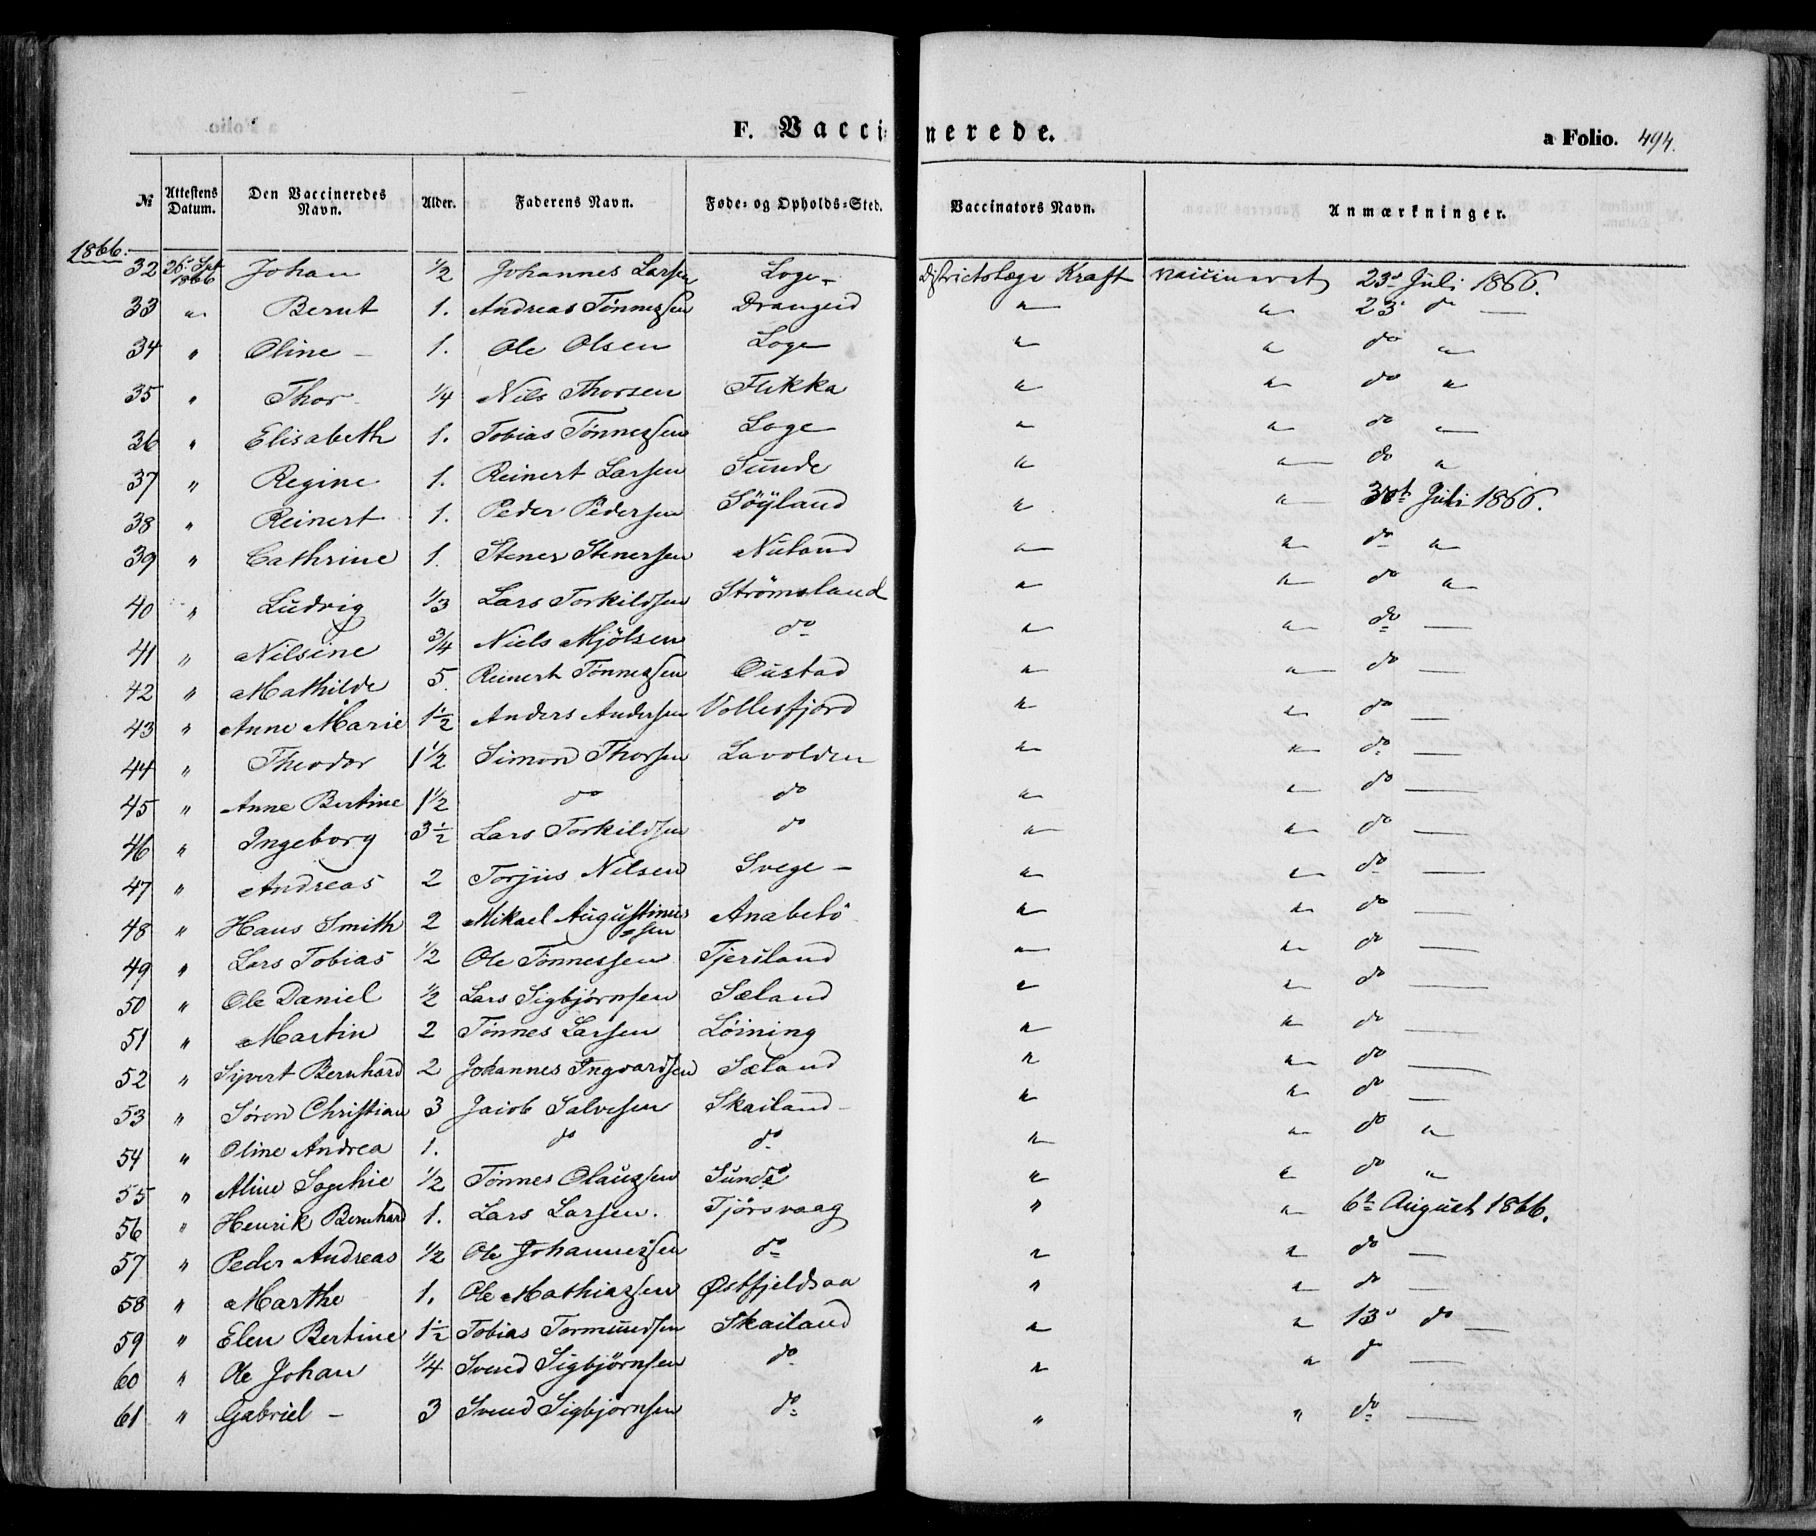 F. Vaccinerede. a Folio. 494.
№ Attestens Datum. Den Vaccineredes Navn. Alder. Faderens Navn. Føde- og Opholds-Sted. Vaccinators Navn. Anmærkninger.
1866.
32 26d Sept 1866 Johan 1/2 Johannes Larsen Loge Districtslæge Kraft vaccineret 23d Juli 1866.
33 " Bernt 1. Andreas Tönnessen Drangeid " " 23d do —
34 " Oline 1. Ole Olsen Loge " " do "
35 " Thor 1/4 Nils Thorsen Flikka " " do "
36 " Elisabeth 1. Tobias Tönnessen Loge " " do "
37 " Regine 1. Reinert Larsen Sunde " " do "
38 " Reinert 1. Peder Pedersen Söyland " " 30t Juli 1866.
39 " Cathrine 1. Stener Stenersen Nuland " " do "
40 " Ludvig 1/3 Lars Torkildsen Strömsland " " do "
41 " Nilsine 3/4 Niels Mjölsen do " " do —
42 " Mathilde 5. Reinert Tönnessen Oustad " " do —
43 " Anne Marie 1 1/2 Anders Andersen Vollesfjord " " do —
44 " Theodor 1 1/2 Simon Thorsen Lavolden " " do —
45 " Anne Bertine 1 1/2 do do " " do —
46 " Ingeborg 3 1/2 Lars Torkildsen do " " do —
47 " Andreas 2 Torjus Nilsen Svege " " do —
48 " Hans Smith 2 Mikael Augustinussen Anabelö " " do —
49 " Lars Tobias 1/2 Ole Tönnessen Tjersland " " do —
50 " Ole Daniel 1/2 Lars Sigbjörnsen Sæland " " do —
51 " Martin 2 Tönnes Larsen Löining " " do —
52 " Sivert Bernhard 2 Johannes Ingvardsen Sæland " " do —
53 " Sören Christian 3 Jacob Salvesen Skailand " " do —
54 " Oline Andrea 1. do do " " do "
55 " Aline Sophie 1/2 Tönnes Olaussen Sunde " " do "
56 " Henrik Bernhard 1. Lars Larsen. Tjörsvaag " " 6t August 1866.
57 " Peder Andreas 1/2 Ole Johannessen do " " do —
58 " Marthe 1. Ole Mathiassen Østfjeldsaa " " do —
59 " Elen Bertine 1 1/2 Tobias Tormundsen Skailand " " 13d do —
60 " Ole Johan 1/4 Svend Sigbjörnsen do " " do —
61 " Gabriel 3 Svend Sigbjörnsen do " " do —